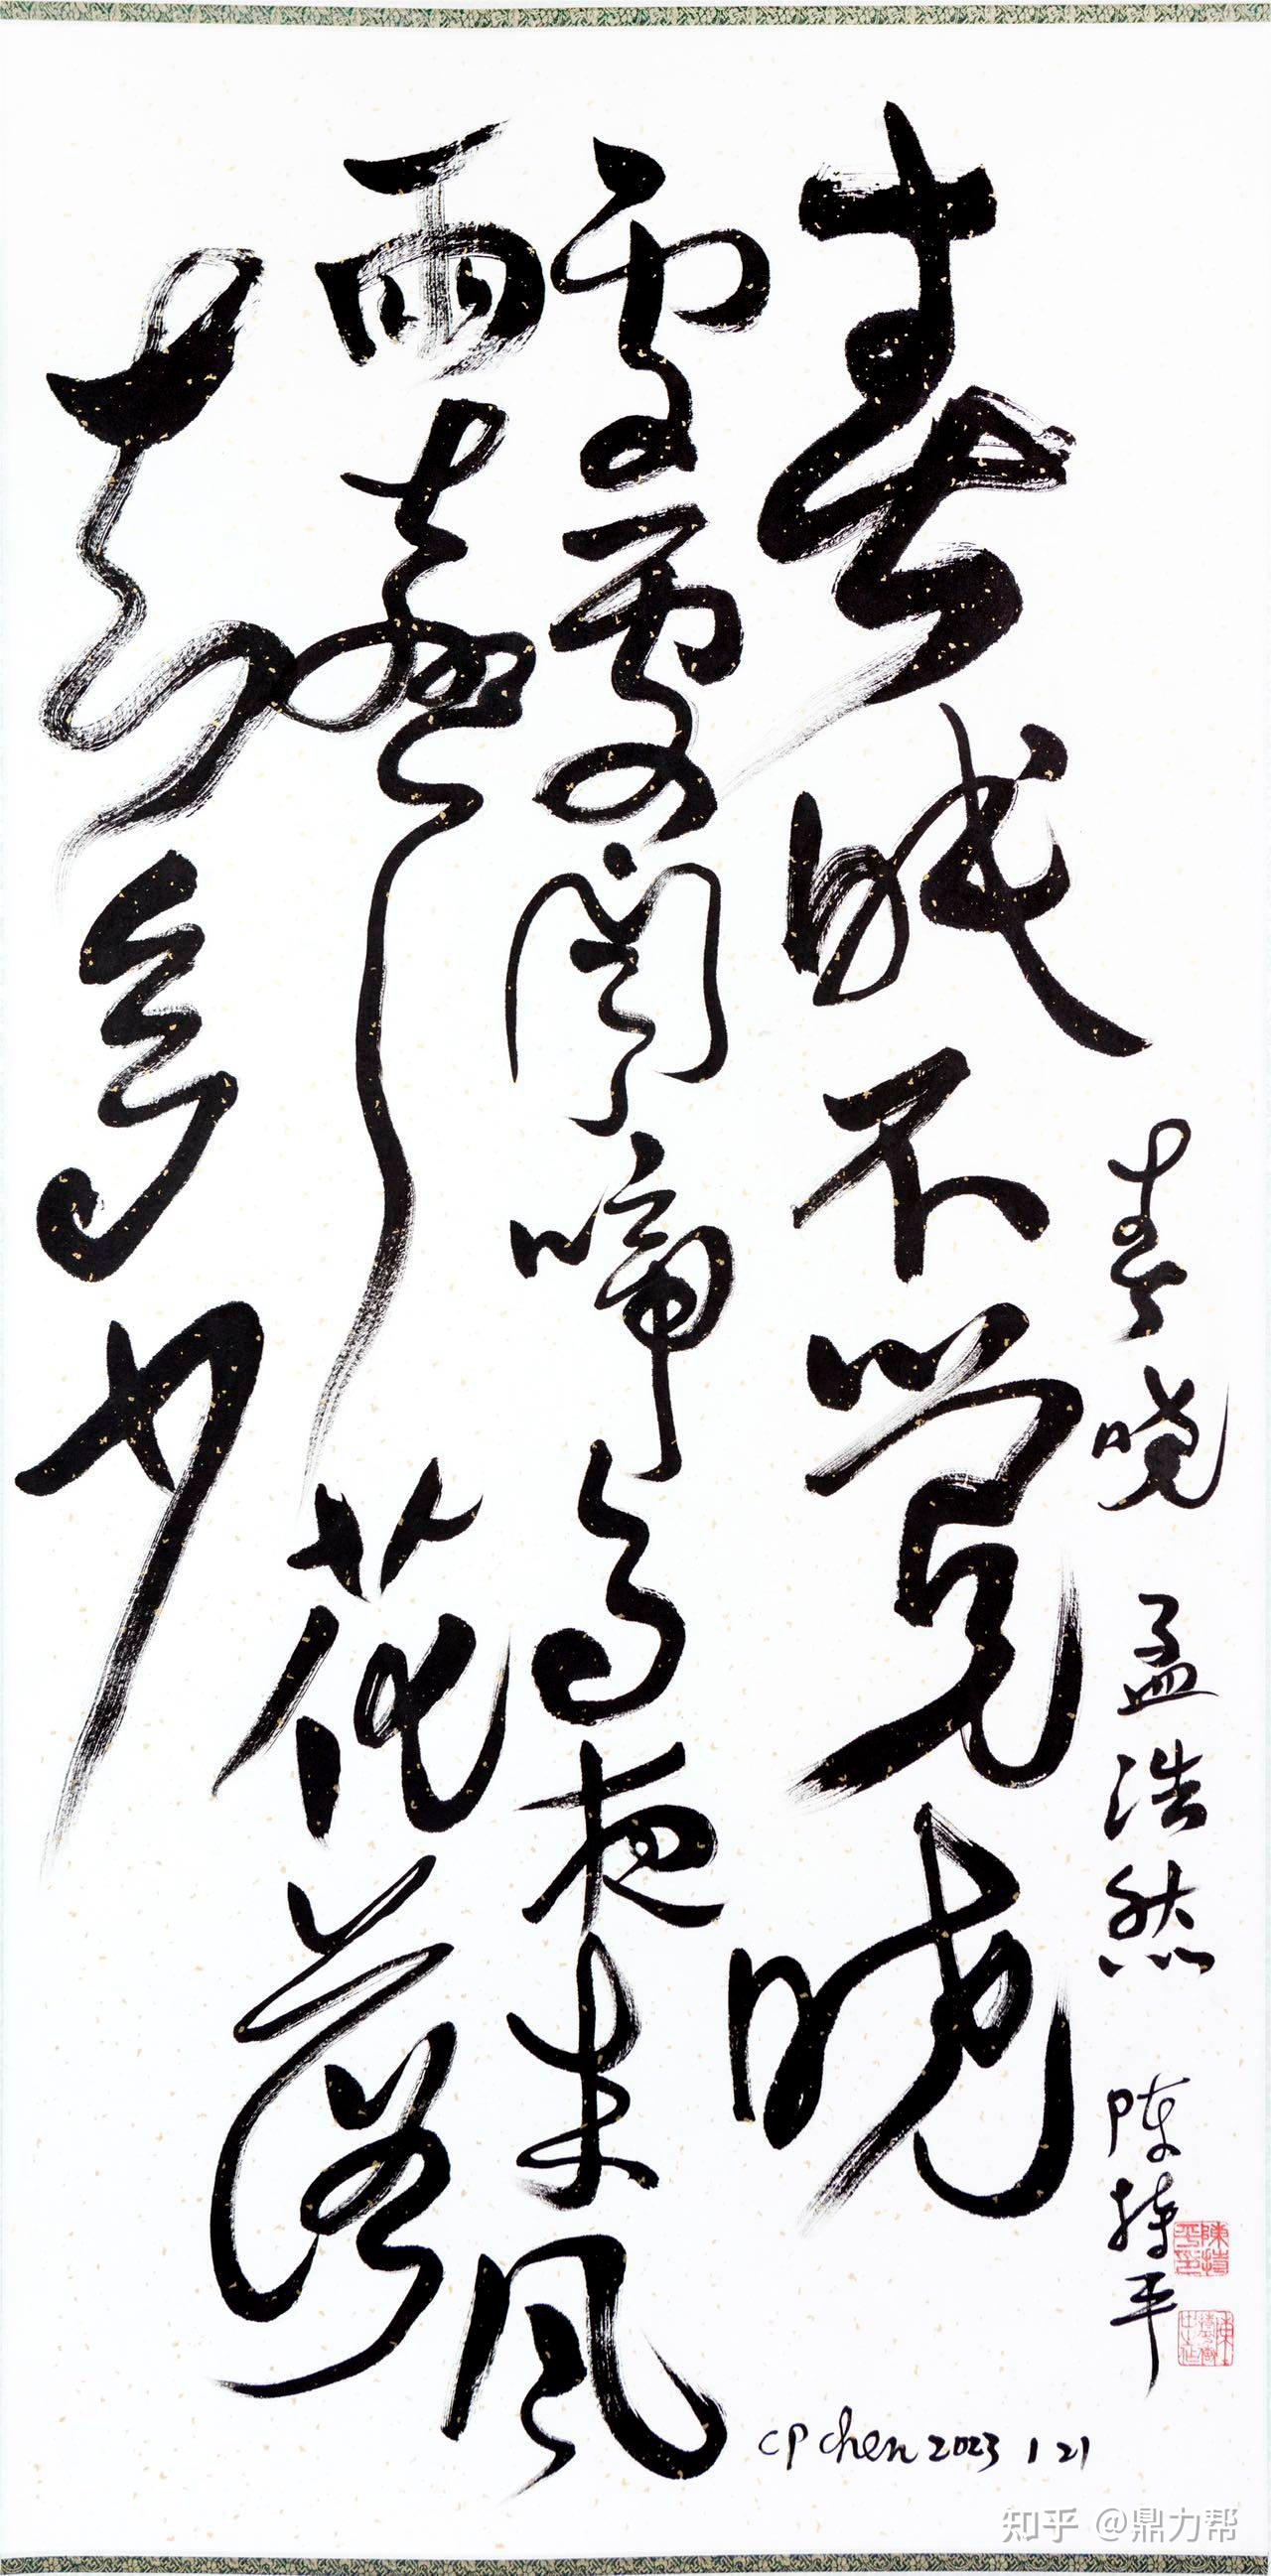 春晓 孟浩然 陈持平
春眠不觉晓
處處闻啼鸟夜来风
雨聲花落
知多少
CP chen 2023 1 21
陳持平印
知乎 @鼎力帮